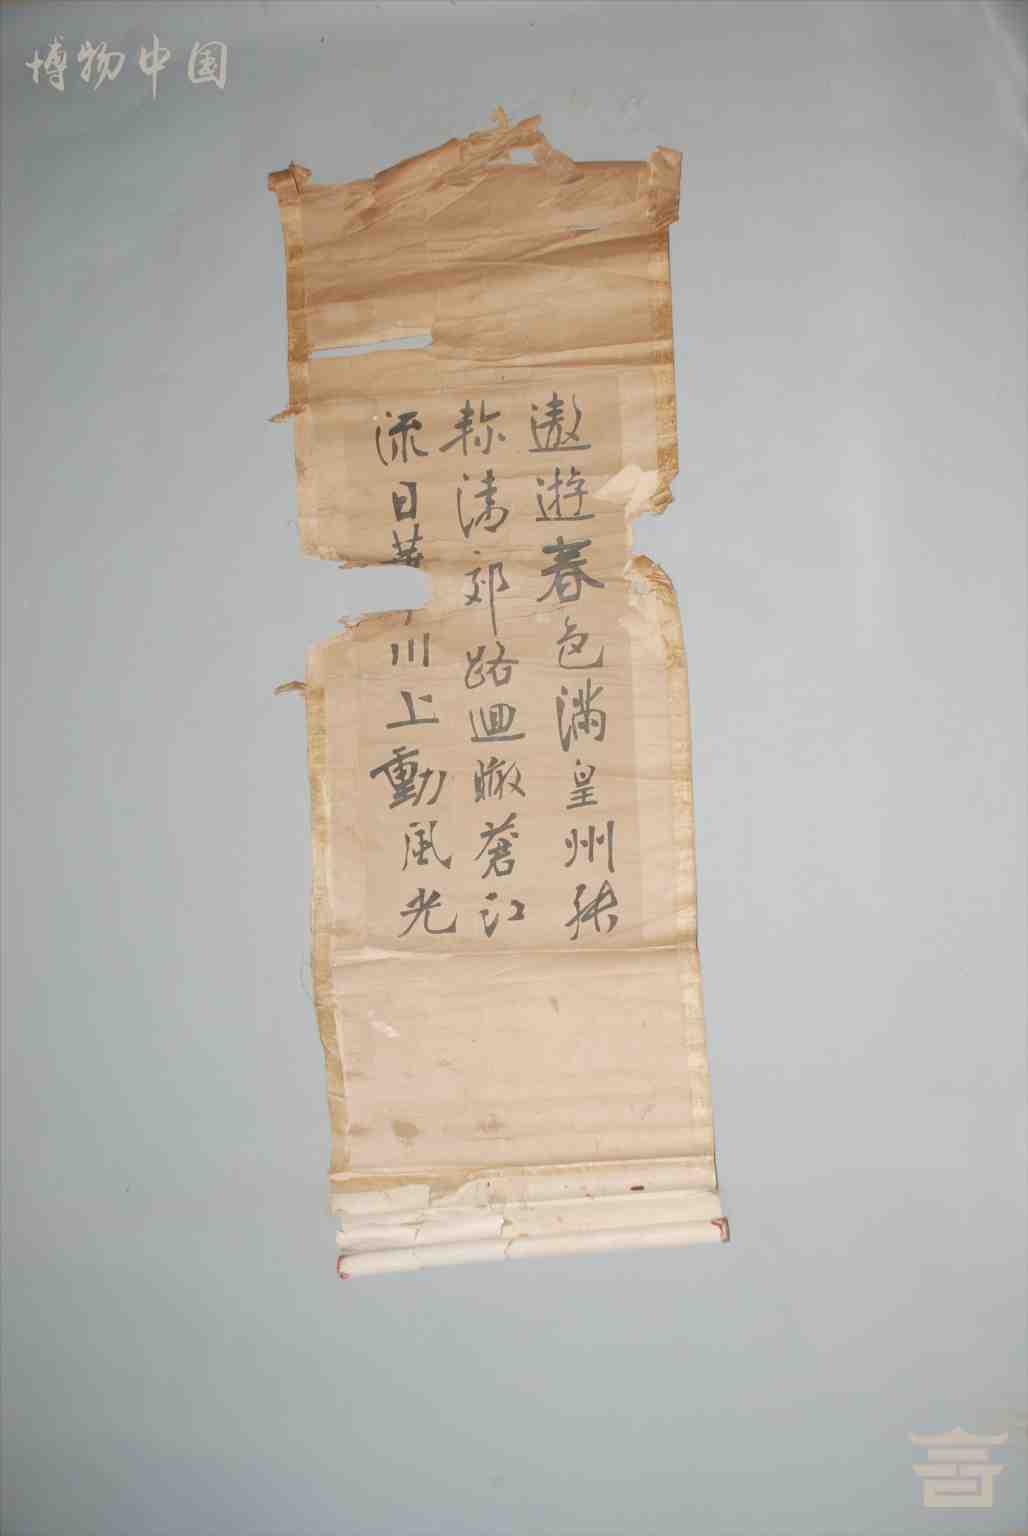 博物中国
遨遊春色滿皇州結
軫清郊路迴瞰蒼江
流日華川上動風光